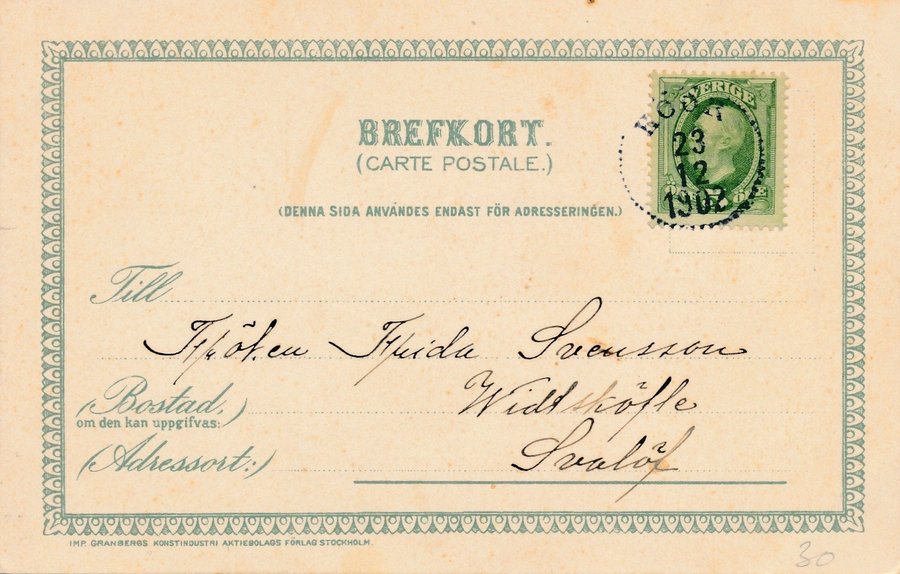 BREFKORT.
(CARTE POSTALE.)
(DENNA SIDA ANVÄNDES ENDAST FÖR ADRESSERINGEN.)
SVERIGE
23
12
1902
ÖRE
Till
Fröken Frida Svensson
(Bostad,)
om den kan uppgifvas:
Widtsköfle
(Adressort:)
Svalöf
IMP. GRANBERGS KONSTINDUSTRI AKTIEBOLAGS FÖRLAG STOCKHOLM.
30